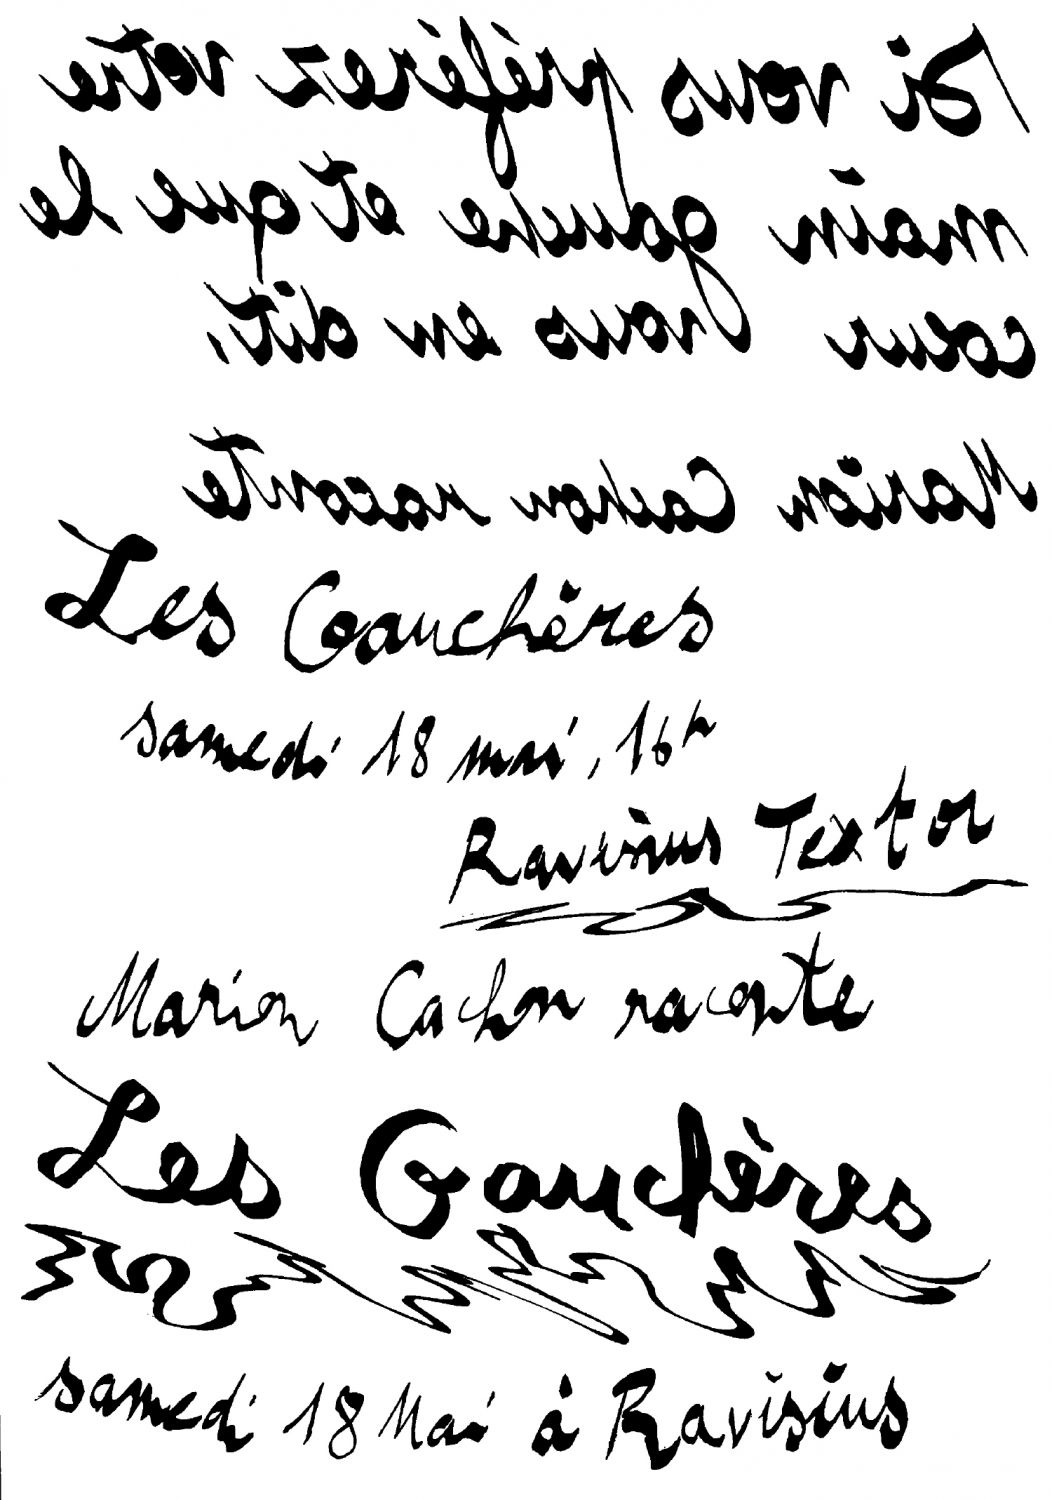 Si vous préférez votre
main gauche et que le
cœur vous en dit,
Marion Cachon raconte
Les Gauchères
samedi 18 mai, 16h
Ravisius Textor
Marion Cachon raconte
Les Gauchères
samedi 18 Mai à Ravisius